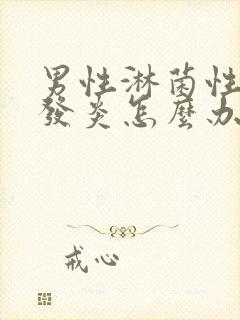 男性淋菌性
發炎怎麼办
戒心